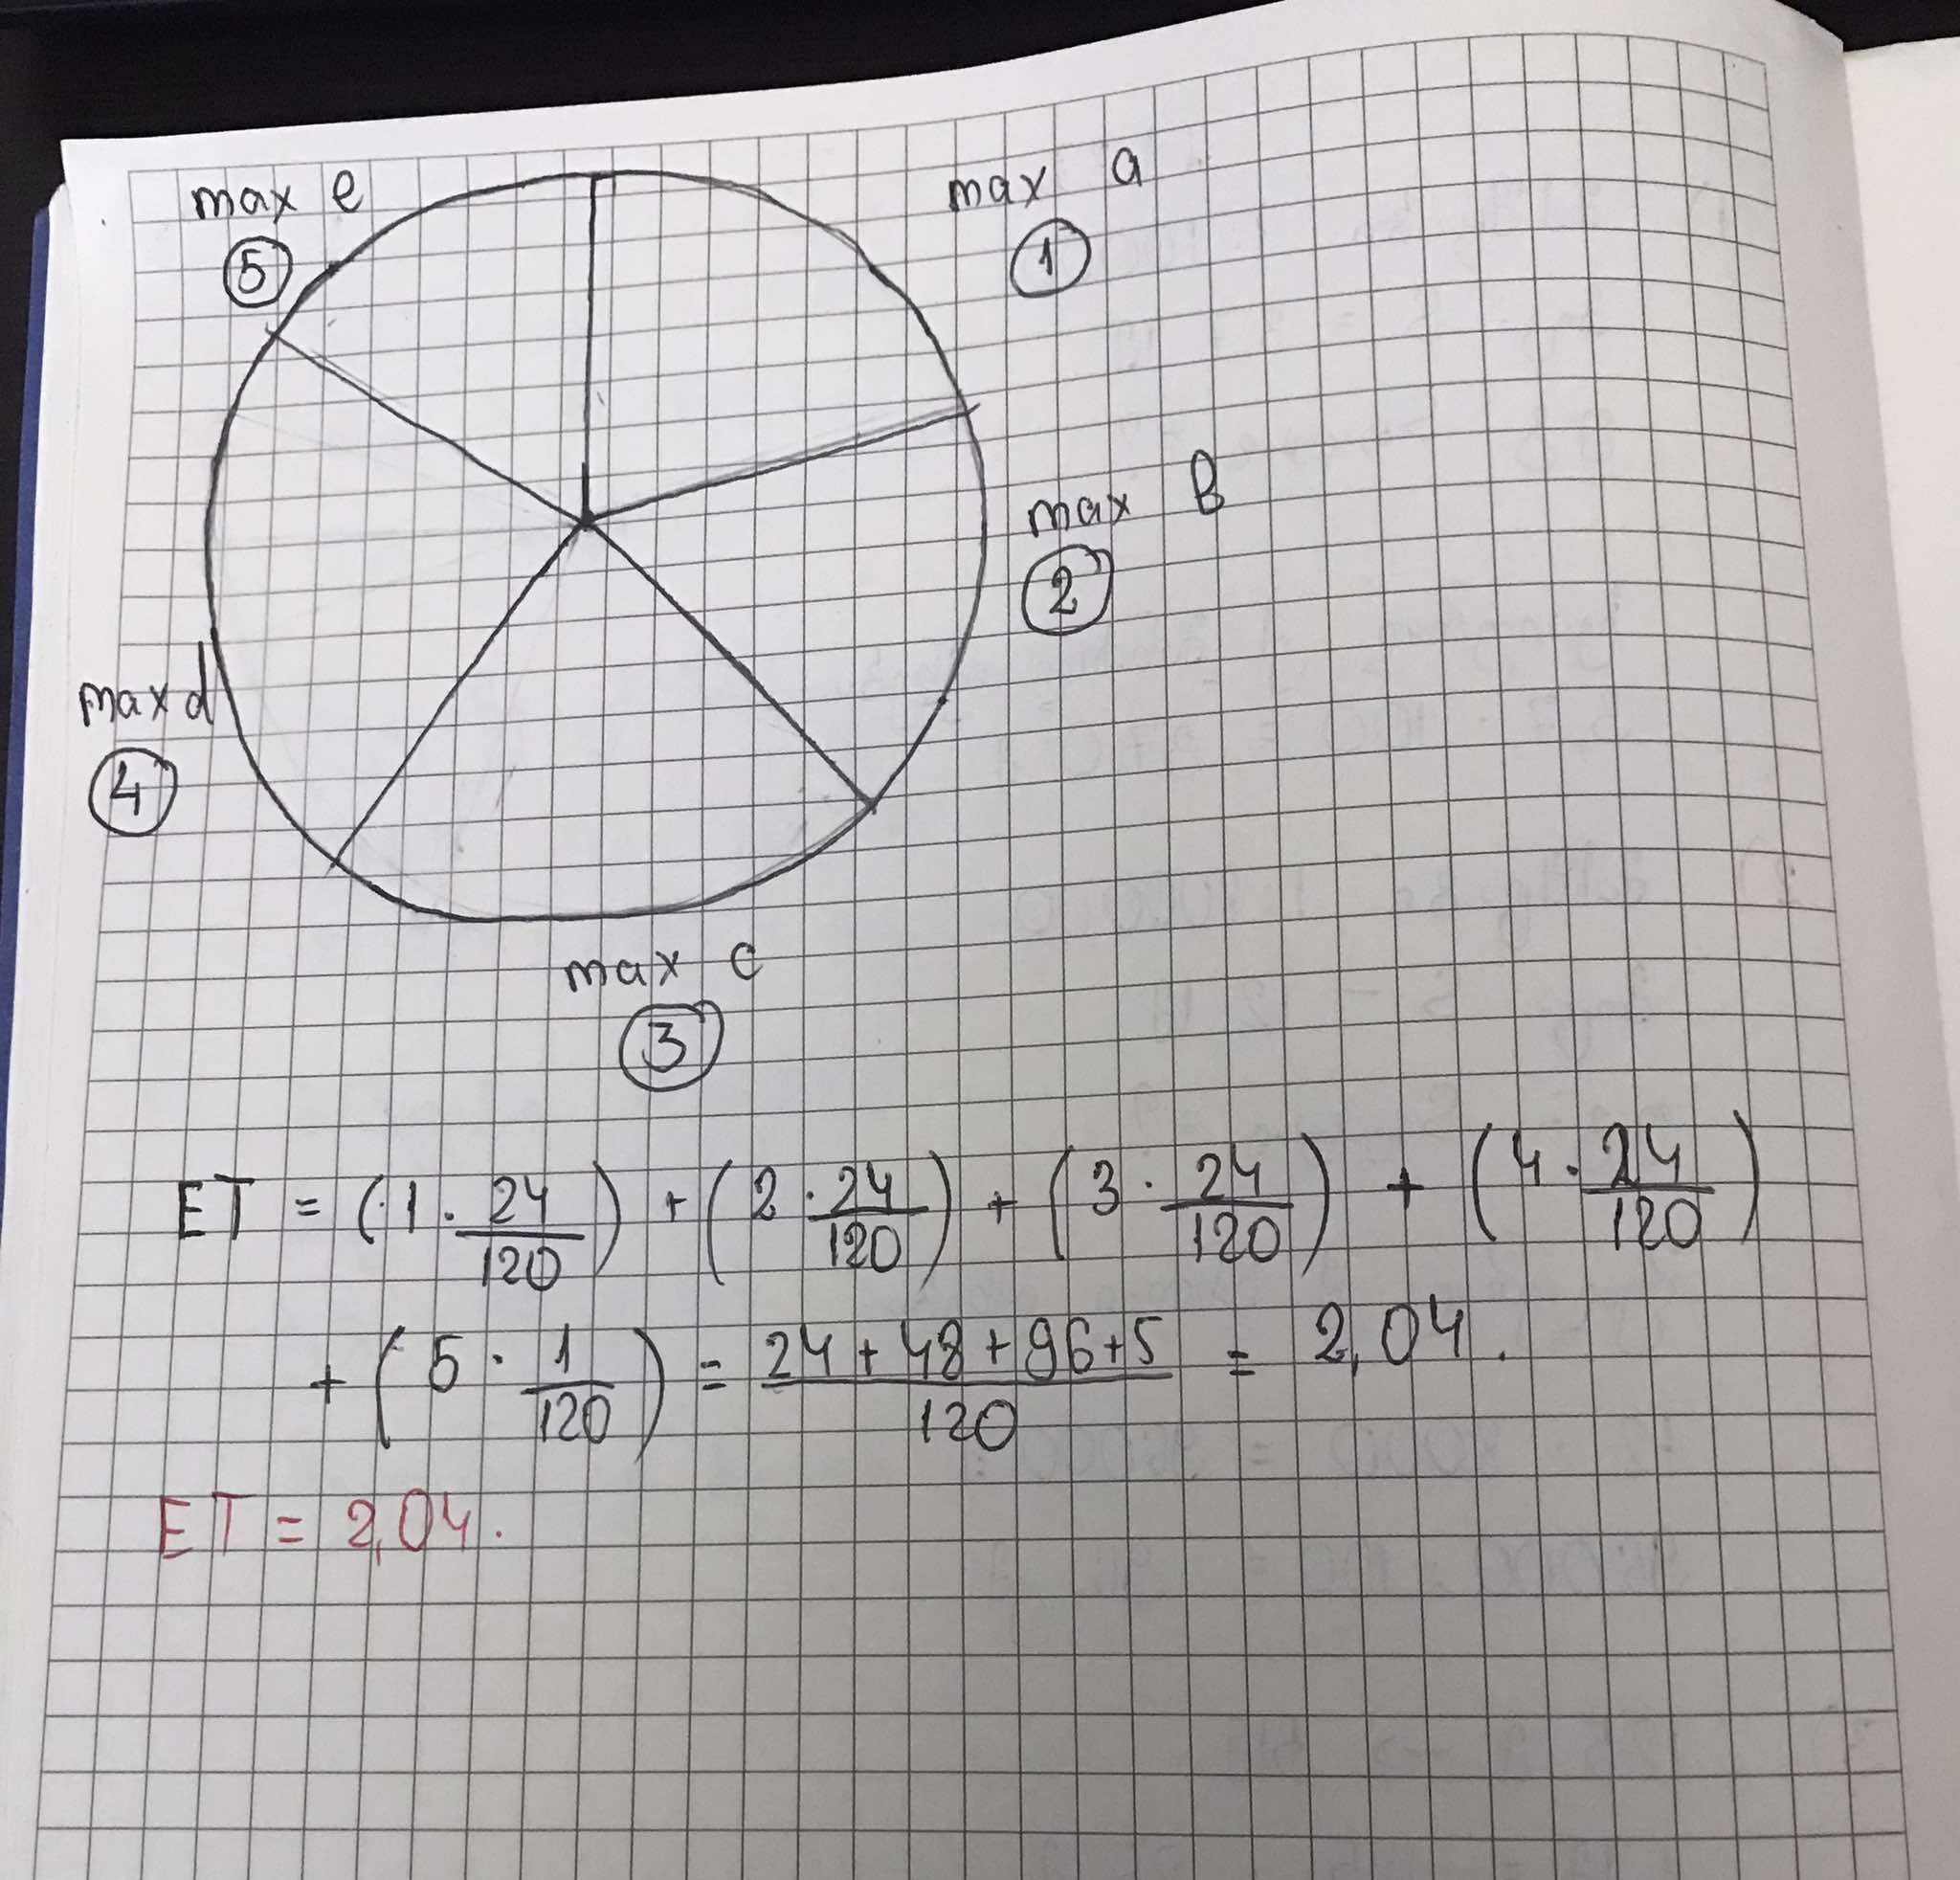 max e
⑤
max a
①
max B
②
max d
④
max c
③
ET = (1 · 24/120) + (2 · 24/120) + (3 · 24/120) + (4 · 24/120)
+ (5 · 1/120) = 24 + 48 + 96 + 5 / 120 = 2,04.
ET = 2,04.